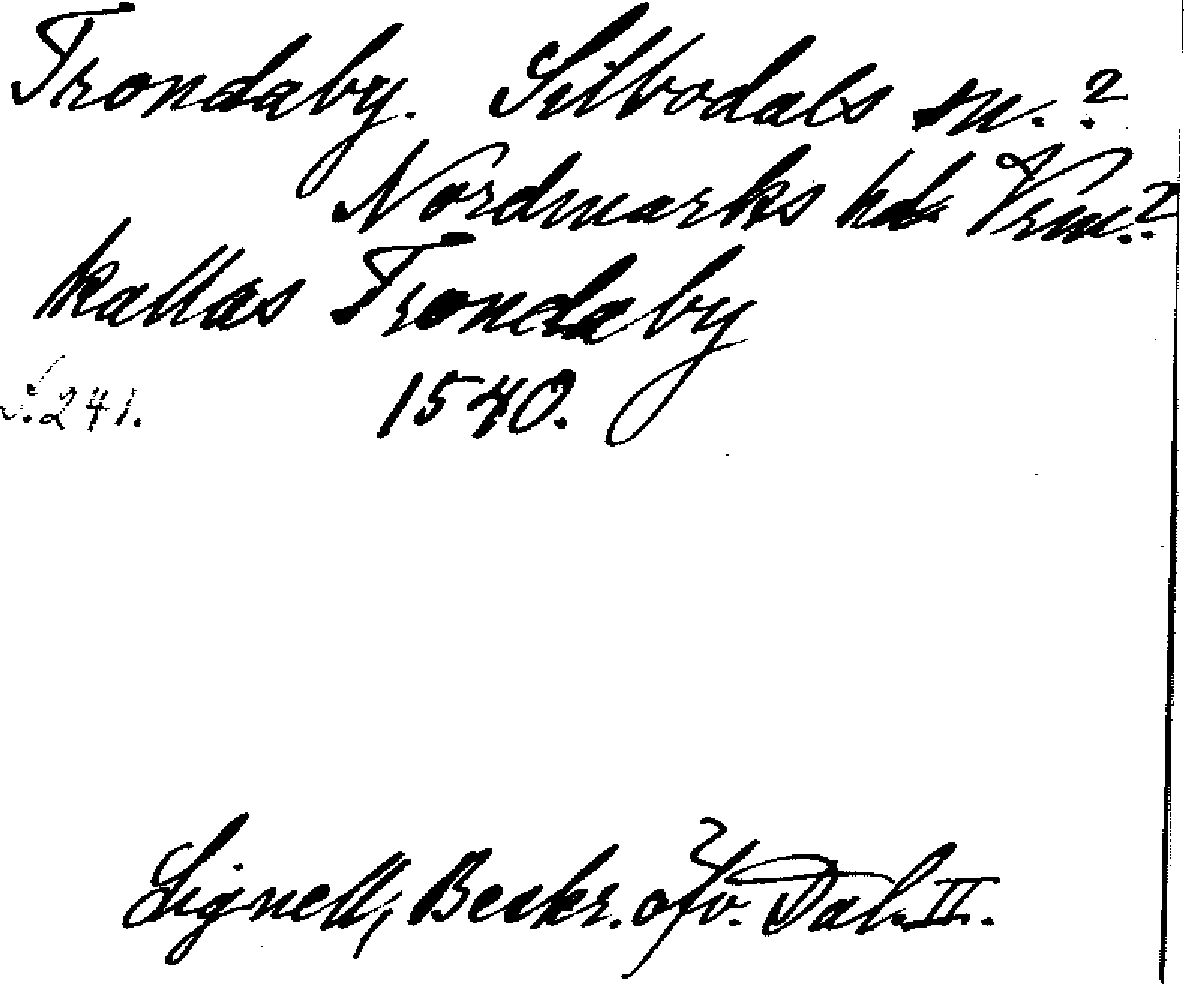 Trondaby. Silbodals sn.?
Nordmarks hd Vrm.?
kallas Trondaby
S. 241. 1540.
Lignell, Beskr. öfv. Dal. II.